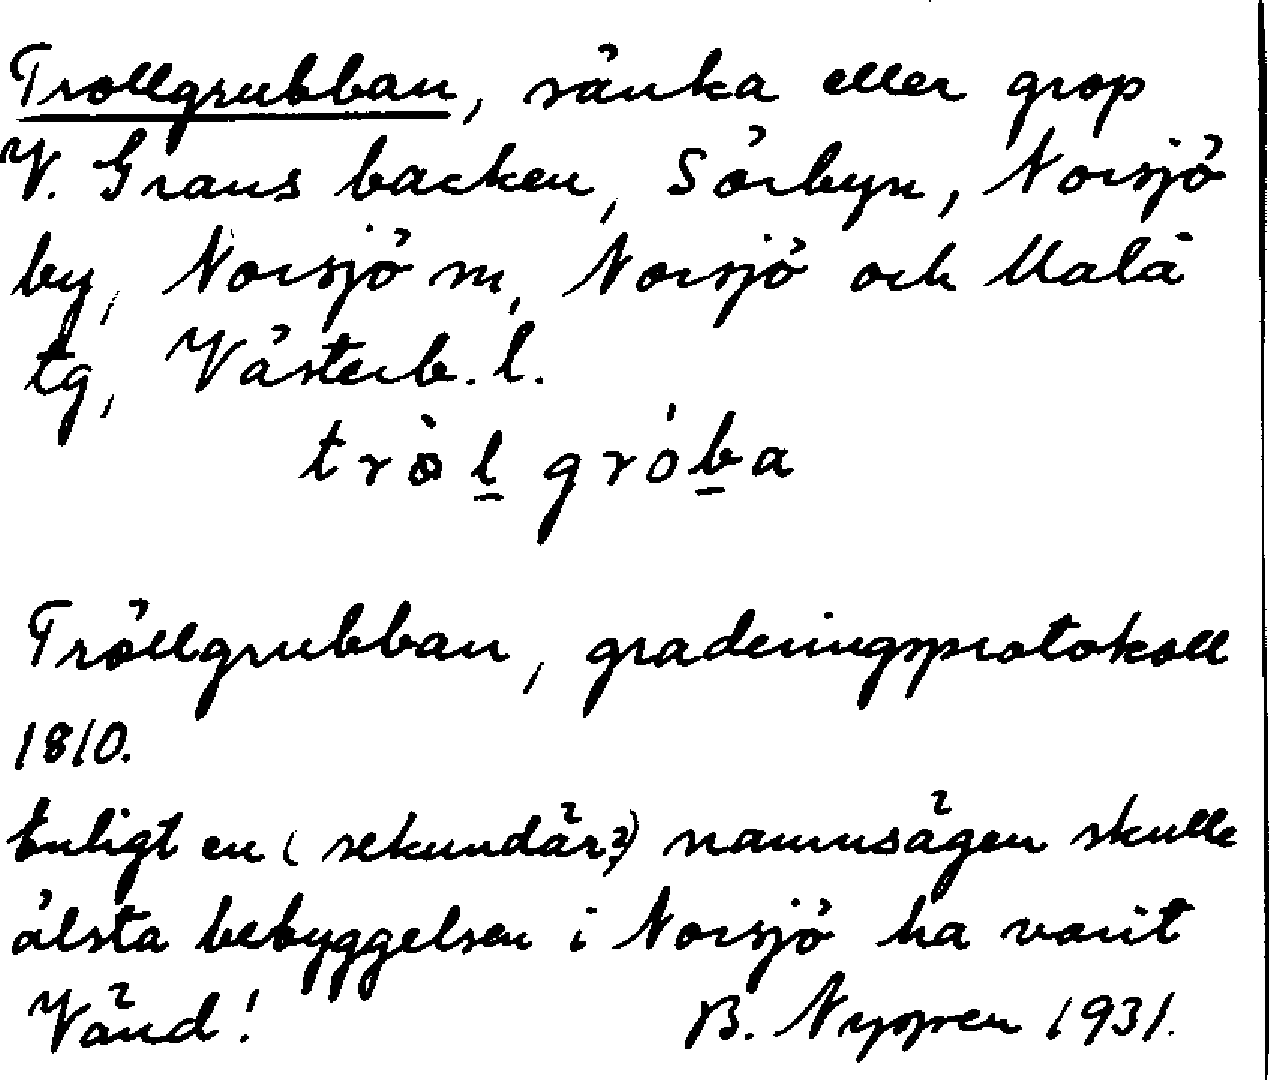 Trollgrubban, sänka eller grop
V. Grans backen, Sörbyn, Norsjö
by, Norsjö sn, Norsjö och Malå
tg, Västerb. l.
tròl gróba
Tröllgrubban, graderingsprotokoll
1810.
Enligt en (sekundär?) namnsägen skulle
älsta bebyggelsen i Norsjö ha varit
Vänd!
B. Nygren 1931.